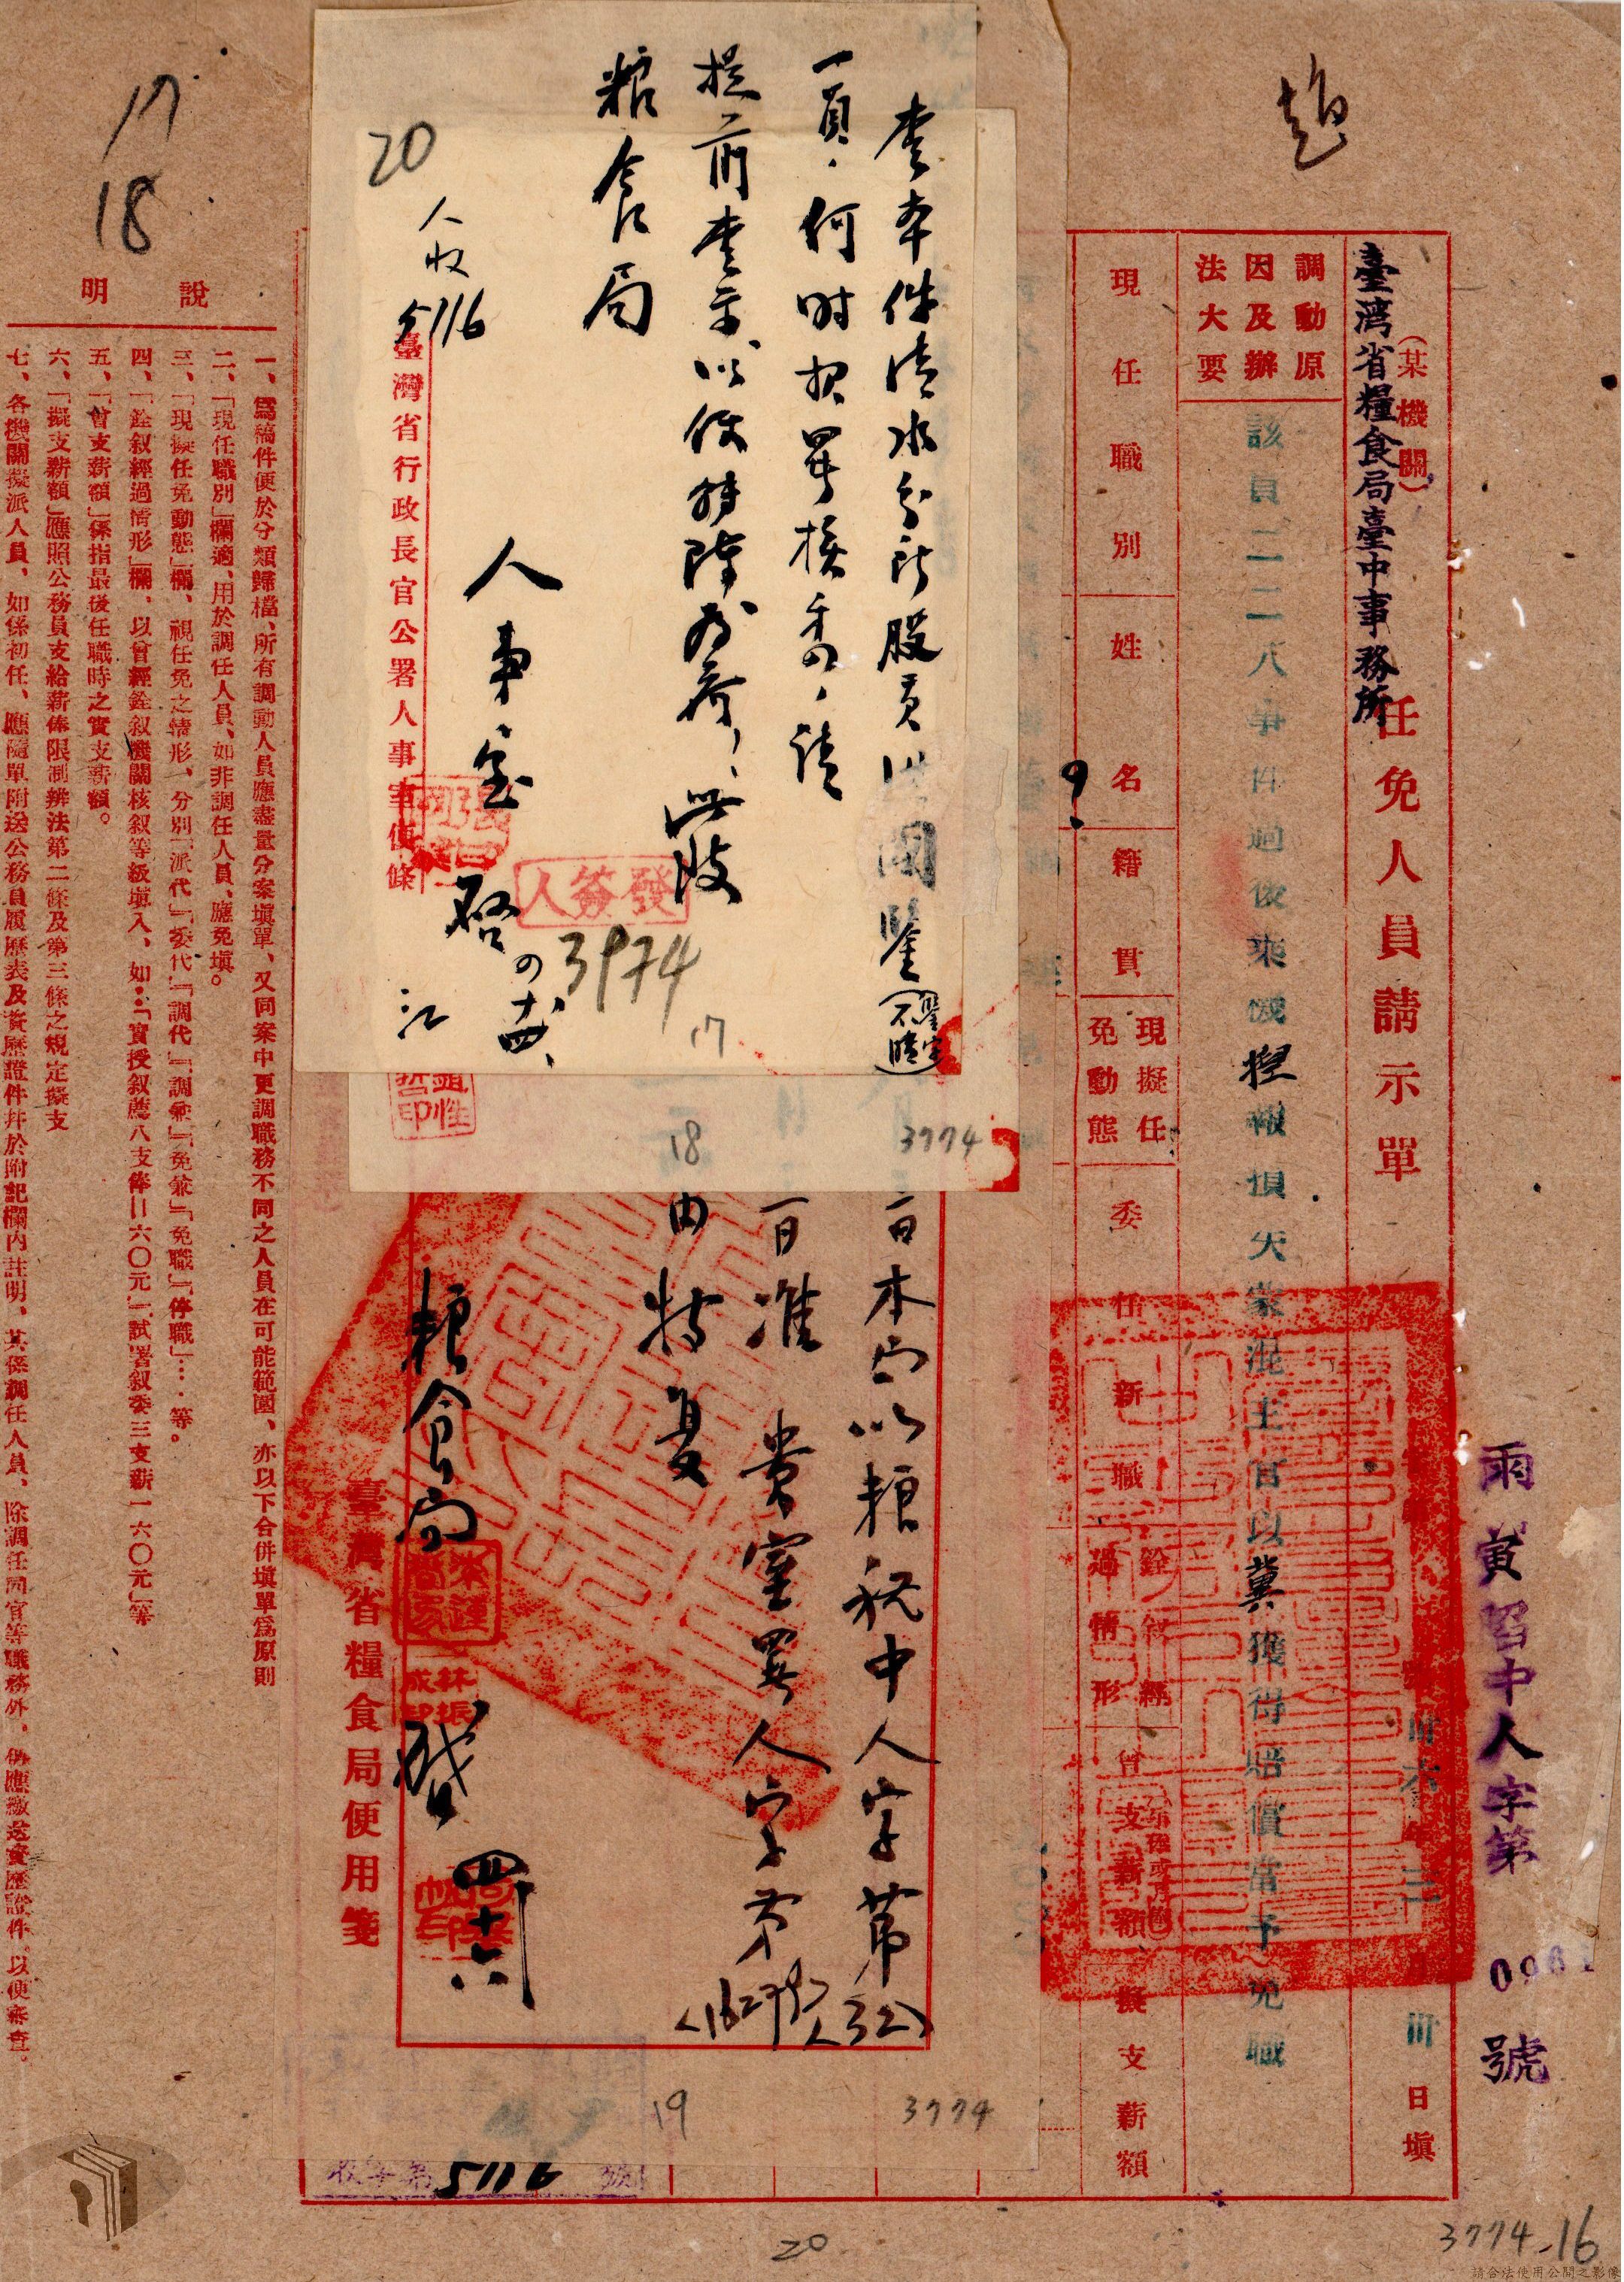 趙
雨黃習中人字第 0961 號
臺灣省糧食局臺中事務所
(某機關)
任免人員請示單
卅六年三月卅日填
調動原因及辦法大要
該員二二八事件過後乘機捏報損失蒙混主官以冀獲得賠償當予免職
現任職別
姓名
籍貫
現擬任免動態
委任新職
銓敘經過情形
曾支薪額
擬支薪額
查本件清水分所股員洪
一員,何時報畢核委,請
提前查示以便特陳為荷,此致
糧食局
人事室 啓
四、十四、
江
發簽人
3974
17
人收
5116
20
臺灣省行政長官公署人事室便條
18
3774
本局以糧秘中人字第
准 貴室署人字第
由特复
糧食局 啓
四、十六
臺灣省糧食局便用箋
林振成印
19
3774
收字第5116號
說明
一、爲稿件便於分類歸檔、所有調動人員應盡量分案塡單、又同案中更調職務不同之人員在可能範圍、亦以下合併塡單爲原則
二、「現任職別」欄適用於調任人員、如非調任人員、應免塡。
三、「現擬任免動態」欄、視任免之情形、分別「派代」「委代」「調代」「調兼」「免兼」「免職」「停職」…等。
四、「銓敘經過情形」欄、以曾經銓敘機關核敘等級塡入、如…「實授敘薦八支俸||六〇元」「試署敘委三支薪一六〇元」等
五、「曾支薪額」係指最後任職時之實支薪額。
六、「擬支薪額」應照公務員支給薪俸限制辦法第二條及第三條之規定擬支
七、各機關擬派人員、如係初任、應隨單附送公務員履歷表及資歷證件幷於附記欄內註明、其係調任人員、除調任同官等職務外、仍應繳送資歷證件、以便審查。
17
18
20
3774-16
請合法使用公開之影像